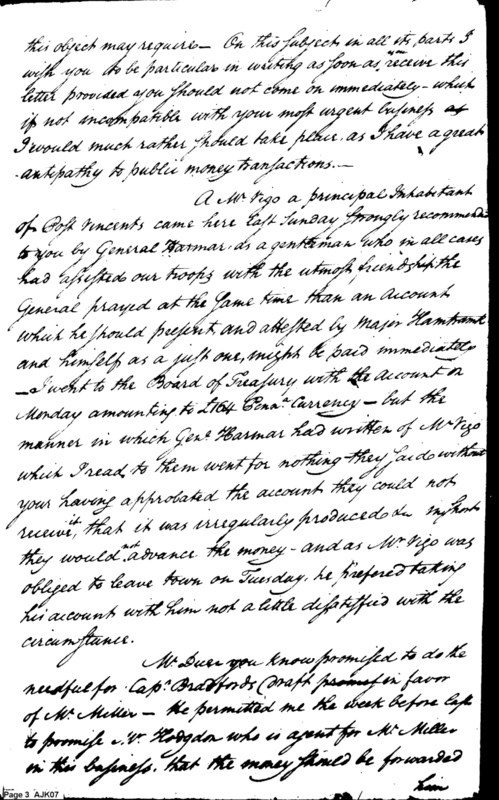 this object may require — On this subject in all its parts I
wish you to be particular in writing as soon as you receive this
letter provided you should not come on immediately — which
if not incompatible with your most urgent business
I would much rather should take place, as I have a great
antipathy to public money transactions. —
A Mr. Vigo a principal Inhabitant
of Post Vincents came here last Sunday strongly recommended
to you by General Harmar, as a gentleman who in all cases
had assisted our troops with the utmost friendship. The
General prayed at the same time than an account
which he should present, and attested by Major Hamtramk
and himself, as a just one, might be paid immediately
— I went to the Board of Treasury with the account on
Monday amounting to £164 Penna. Currency — but the
manner in which Genl. Harmar had written of Mr Vigo
which I read to them went for nothing — they said without
your having approbated the account they could not
receive it, that it was irregularly produced &c in short
they would not advance the money — and as Mr. Vigo was
obliged to leave town on Tuesday, he prefered taking
his account with him not a little dissatisfied with the
circumstance.
Mr. Duer you know promised to do the
needful for Capt. Bradfords Draft in favor
of Mr. Miller — He permitted me the week before last
to promise Mr. Hodgdon who is agent for Mr. Miller
in this business, that the money should be forwarded
him
Page 3 AJK07